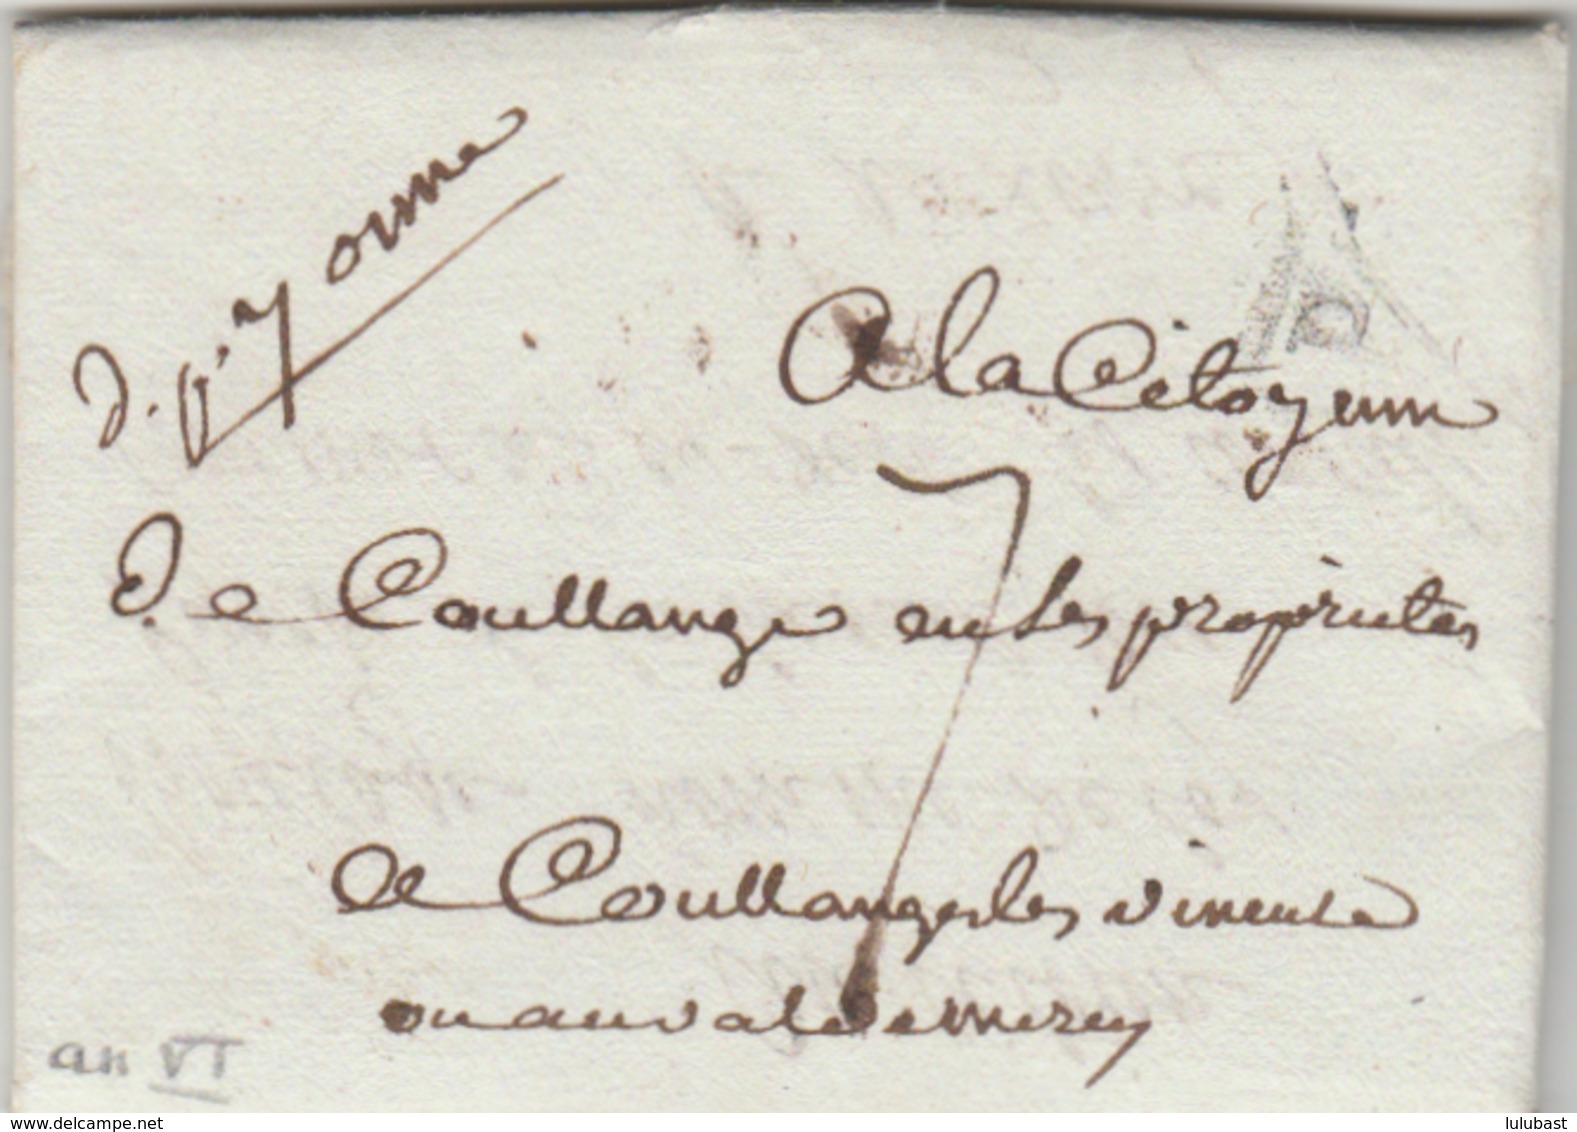 d. pt yonne
A la Citoyenne
De Coullange en ses propriettes
de Coullanges les vineuse
ou au val de mercy
7
P
an VI
www.delcampe.net
lulubast